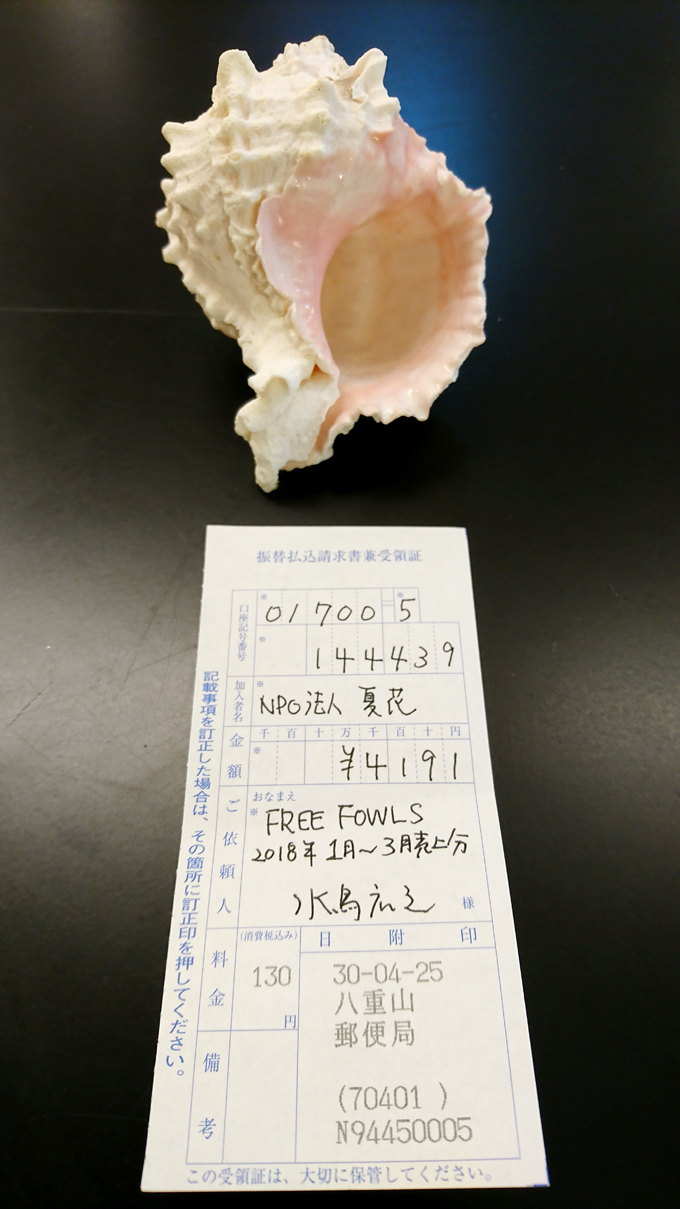 振替払込請求書兼受領証
口座記号番号
※ 01700 ※ 5
※ 144439
加入者名
※ NPO法人 夏花
金額
千 百 十 万 千 百 十 円
※ ¥4191
ご依頼人
おなまえ
※ FREE FOWLS
2018年 1月～3月売上分
水鳥広之 様
料金
(消費税込み)
130
円
日附印
30-04-25
八重山
郵便局
(70401 )
N94450005
備考
記載事項を訂正した場合は、その箇所に訂正印を押してください。
この受領証は、大切に保管してください。